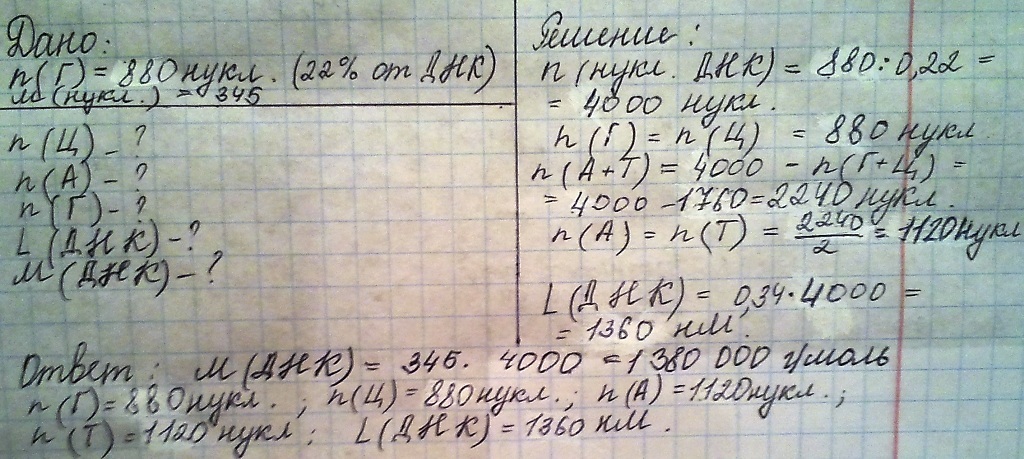 Дано:
n(Г) = 880 нукл. (22% от ДНК)
M(нукл.) = 345
n(Ц) - ?
n(А) - ?
n(Г) - ?
L(ДНК) - ?
M(ДНК) - ?
Решение:
n(нукл. ДНК) = 880:0,22 =
= 4000 нукл.
n(Г) = n(Ц) = 880 нукл
n(А+Т) = 4000 - n(Г+Ц) =
= 4000 - 1760 = 2240 нукл.
n(А) = n(Т) = 2240/2 = 1120 нукл
L(ДНК) = 0,34·4000 =
= 1360 нм.
Ответ: M(ДНК) = 345· 4000 = 1380 000 г/моль
n(Г) = 880 нукл.; n(Ц) = 880 нукл.; n(А) = 1120 нукл.;
n(Т) = 1120 нукл; L(ДНК) = 1360 нм.